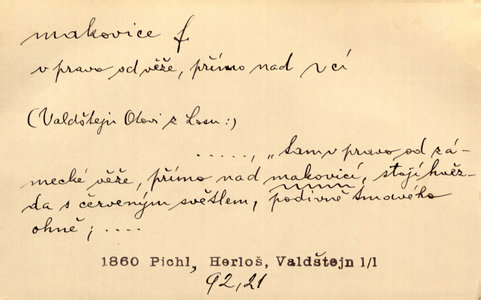 makovice f.
v pravo od věže, přímo nad vcí
(Valdštejn Otovi z Losu:)
....., „tam v pravo od zá-
mecké věže, přímo nad makovicí, stojí hvěz-
da s červeným světlem, podivně tmavého
ohně; ....
1860 Pichl, Herloš, Valdštejn 1/1
92,21